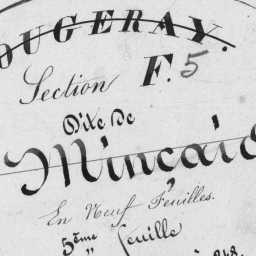 OUGERAY.
Section F. 5
Dite De
Mincaid
En Neuf Feuilles.
5ème feuille